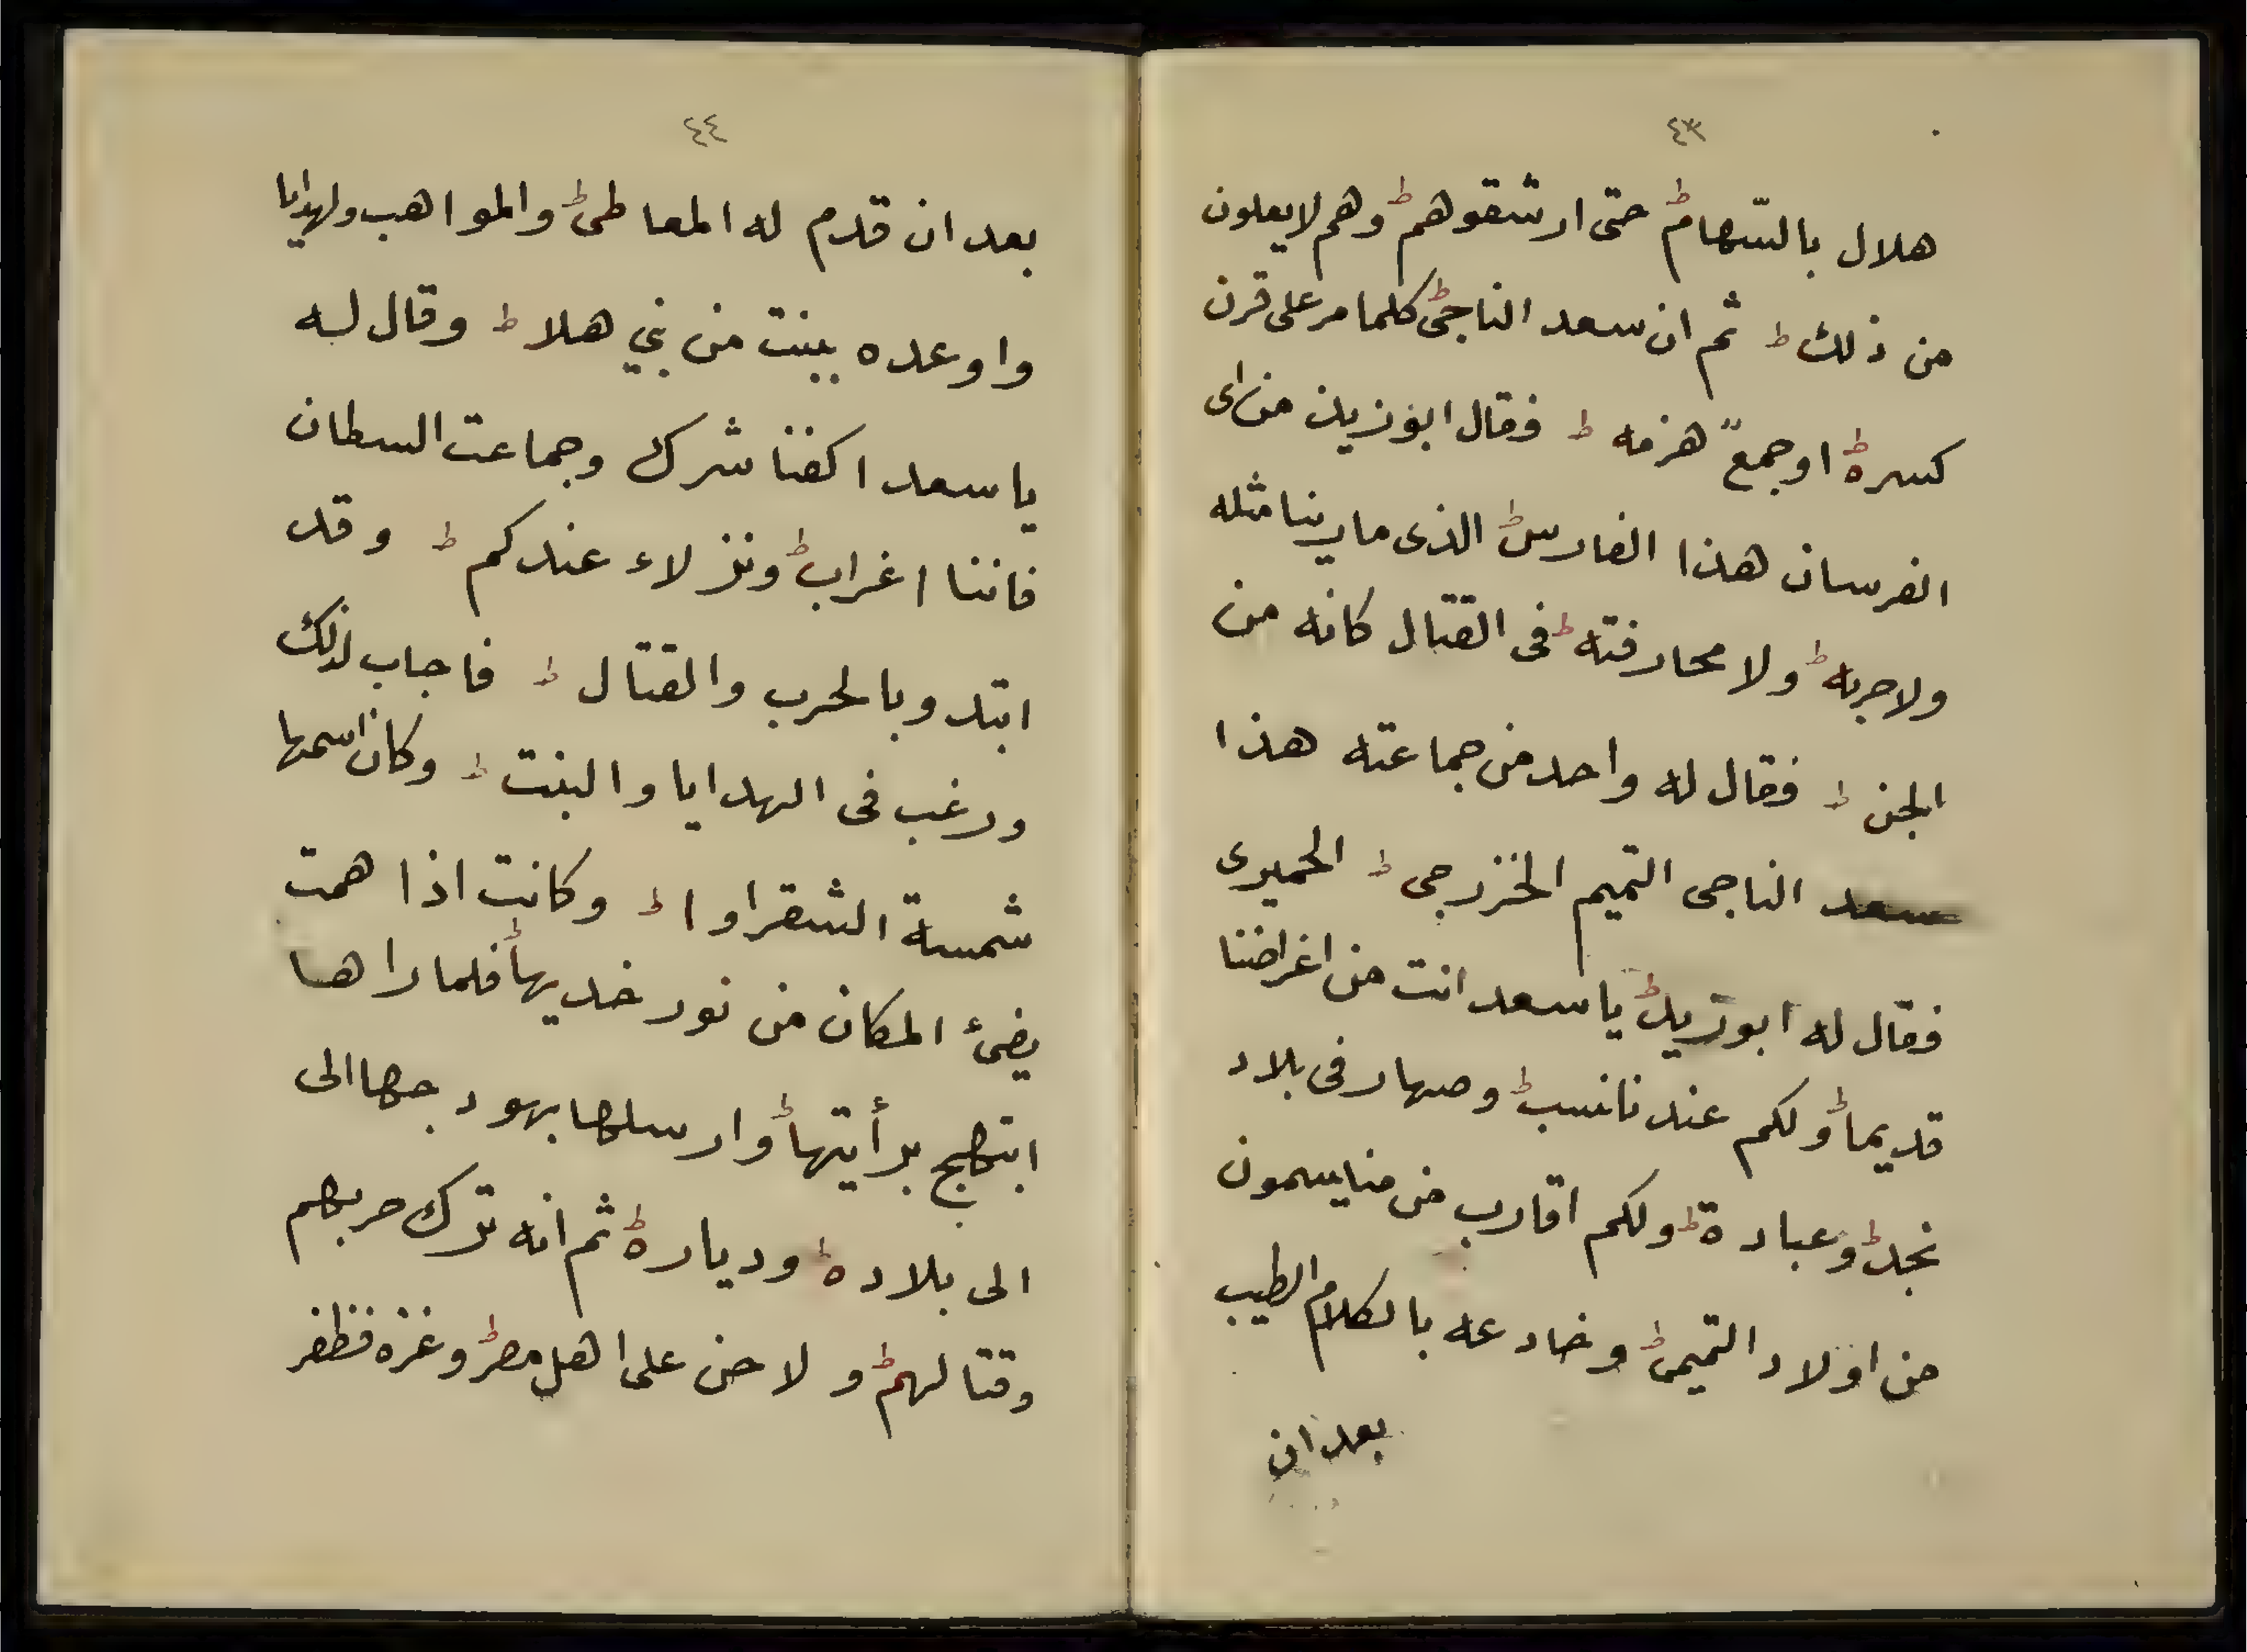 ٤٣
هلال بالسّهام حتى ارشقوهم وهم لا يعلون
من ذلك ثم ان سعد الناجى كلما مر على قرن
كسره او جمعً هزمه فقال ابو زيد من اى
الفرسان هذا الفارس الذى ما رينا مثله
ولا حربه ولا محارفته فى القتال كانه من
الجن فقال له واحد من جماعته هذا
سعد الناجى التميم الخزرجى الحميرى
فقال له ابو زيد يا سعد انت من اغراضنا
قديما ولكم عندنا نسب وصهار فى بلاد
نجد وعبادة ولكم اقارب من منا يسمون
من اولاد التميمى وخادعه بالكلام الطيب
بعد ان
٤٤
بعد ان قدم له المعاطى والمواهب ولهدايا
واوعده ببنت من بني هلا وقال له
يا سعد اكفنا شرك وجماعت السطان
فاننا اغراب ونزلاء عندكم وقد
ابتدو بالحرب والقتال فاجاب لذلك
ورغب فى الهدايا والبنت وكان اسمها
شمسة الشقراوا وكانت اذا همت
يضئ المكان من نور خديها فلما راها
ابتهج برأيتها وارسلها بهودجها الى
الى بلاده ودياره ثم انه ترك حربهم
وقتالهم ولا حن على اهل مصر وغزه فظفر